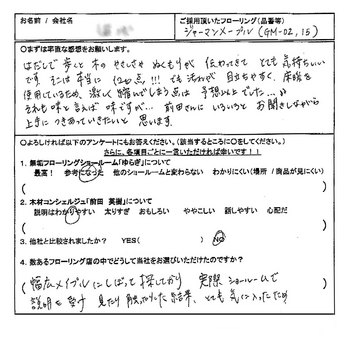 お名前 / 会社名
ご採用頂いたフローリング(品番等)
ジャーマンメープル (GM-02, 15)
○まずは率直な感想をお願いします。
はだしで 歩くと 木の やさしさ ぬくもりが 伝わってきて とても 気持ちいい
です。そこは本当に 120点!!! でも 汚れが 目立ちやすく、床暖
を使用しているため、激しく 縮んでしまう点は 予想以上でした…
それも味と言えば 味ですが… 前田さんに いろいろと お聞きしながら
上手に つきあっていきたいと 思います。
○よろしければ以下のアンケートにもお答えください。(該当するところに○をしてください。)
さらに、各項目ごとに一言いただければ幸いです!!
1. 無垢フローリングショールーム「ゆらぎ」について
最高! 参考になった 他のショールームと変わらない わかりにくい(場所 / 商品が見にくい)
( )
2. 木材コンシェルジュ「前田 英樹」について
説明はわかりやすい 太りすぎ おもしろい ややこしい 話しやすい 心配だ
( )
3. 他社と比較されましたか? YES( ) NO
4. 数あるフローリング店の中でどうして当社をお選びいただけたのですか?
(幅広メイプルにしぼって 探しており 実際 ショールームで
説明を受け 見たり 触ったりした結果、とても 気に入ったため)